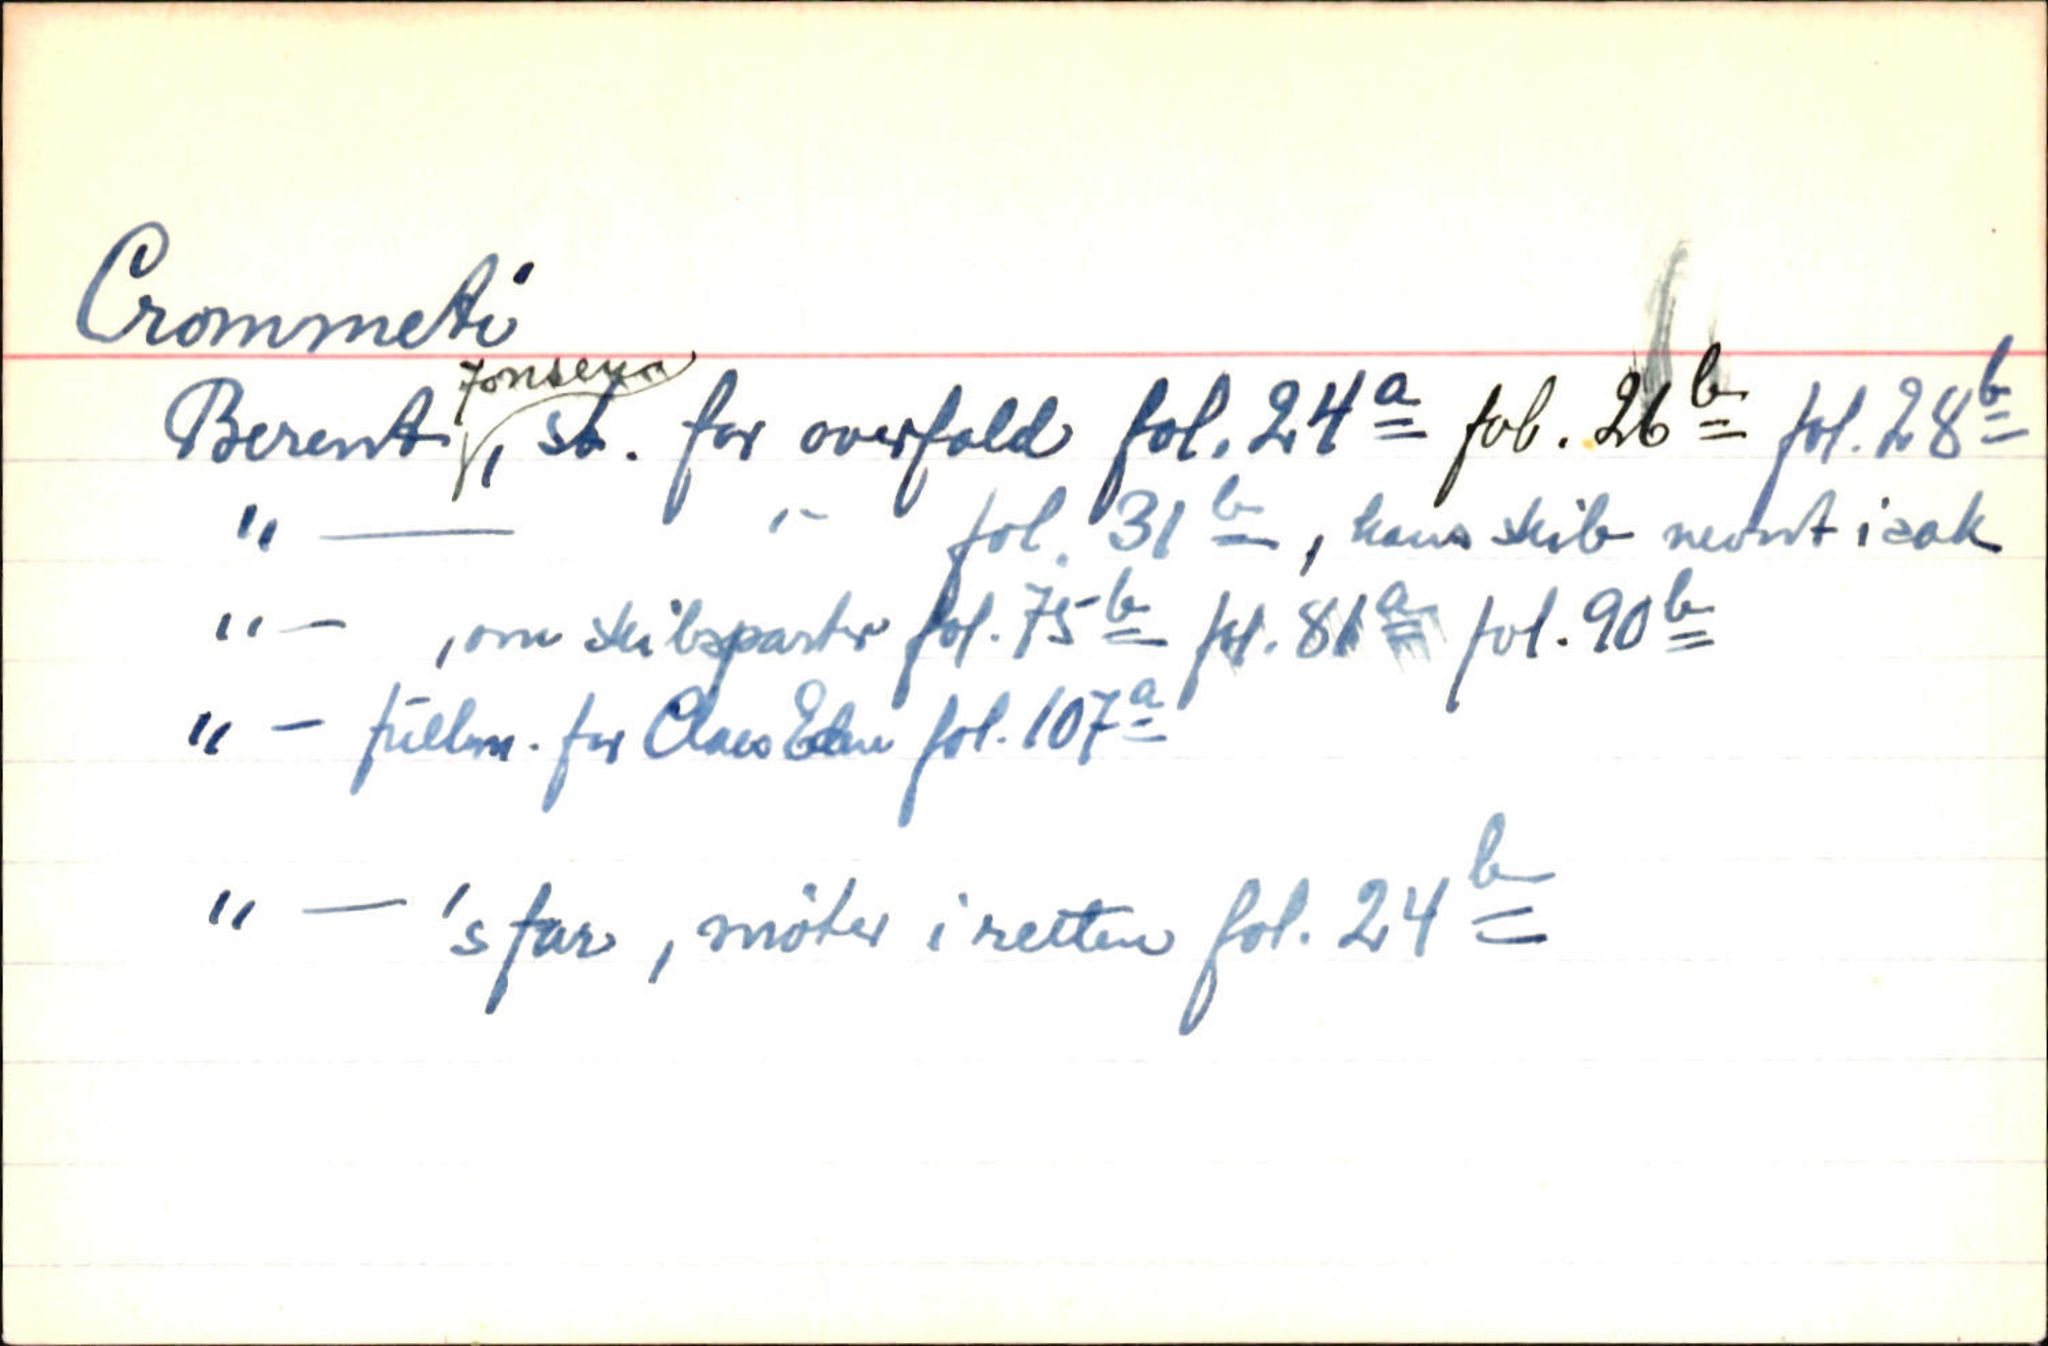 Crommeti
Jonsen
Berent, st. for overfald fol. 24a fol. 26b fol. 28b
" — " fol. 31b, hans skib nevnt i sak
" — , om skibsparter fol. 75b fol. 81a fol. 90b
" — fullm. for Claes fol. 107a
" — 's far, möter i retten fol. 24b